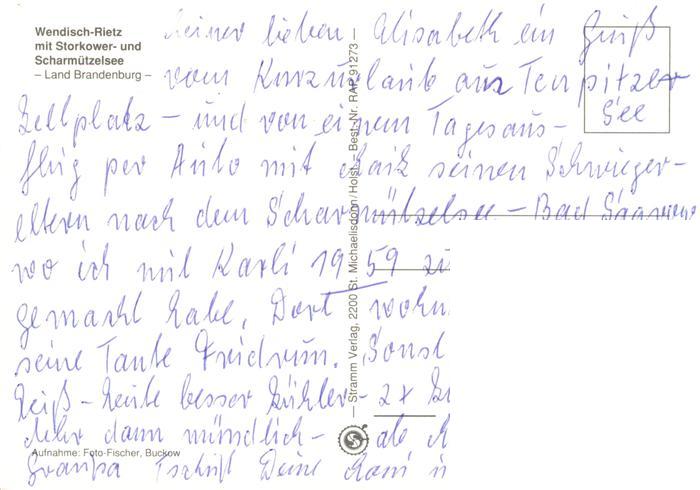 Wendisch-Rietz
mit Storkower- und
Scharmützelsee
– Land Brandenburg –
Meiner lieben Elisabeth ein Gruß
vom Kurzurlaub aus Teupitzer
See
Zeltplatz – und von einem Tagesaus-
flug per Auto mit Maik seinen Schwieger-
eltern nach dem Scharmützelsee – Bad Saarow
wo ich mit Karli 1959 zu
gemacht habe. Dort wohn
seine Tante Fridrun. Sonst
heiß – heute besser kühler – 2x
Mehr dann mündlich – ab
Deine
Aufnahme: Foto-Fischer, Buckow
– Stramm Verlag, 2200 St. Michaelisdonn/Holst. – Best.-Nr. RAP 91273 –